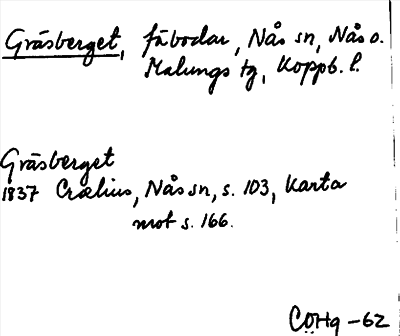 Gräsberget, fäbodar, Nås sn, Nås o.
Malungs tg, Koppb. l.
Gräsberget
1837 Crælius, Nås sn, s. 103, karta
mot s. 166.
CÖHg -62